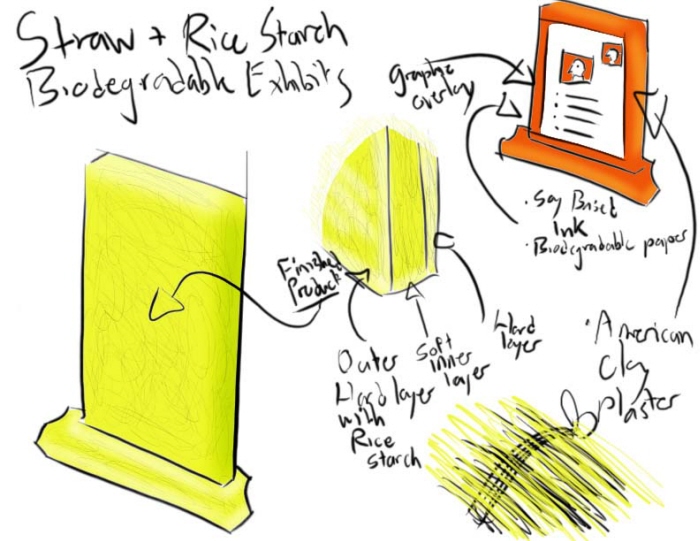 Straw + Rice Starch
Biodegradable Exhibits
graphic
overlay
· Soy Based
Ink
· Biodegradable paper
Finished
Product
Outer
Hard layer
with
Rice
starch
Soft
inner
layer
Hard
layer
· American
Clay
plaster